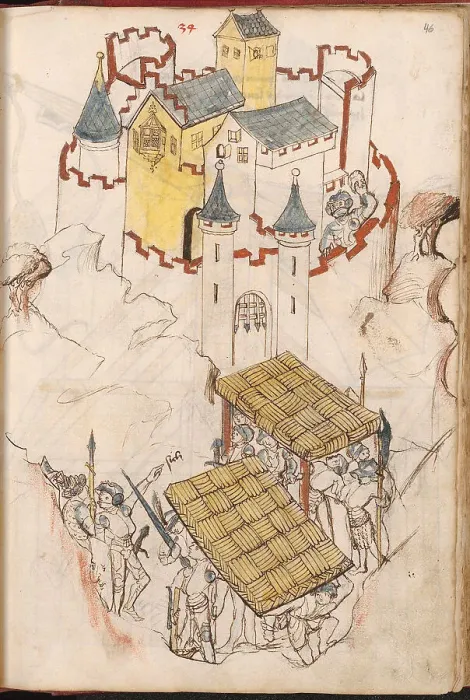 34
46